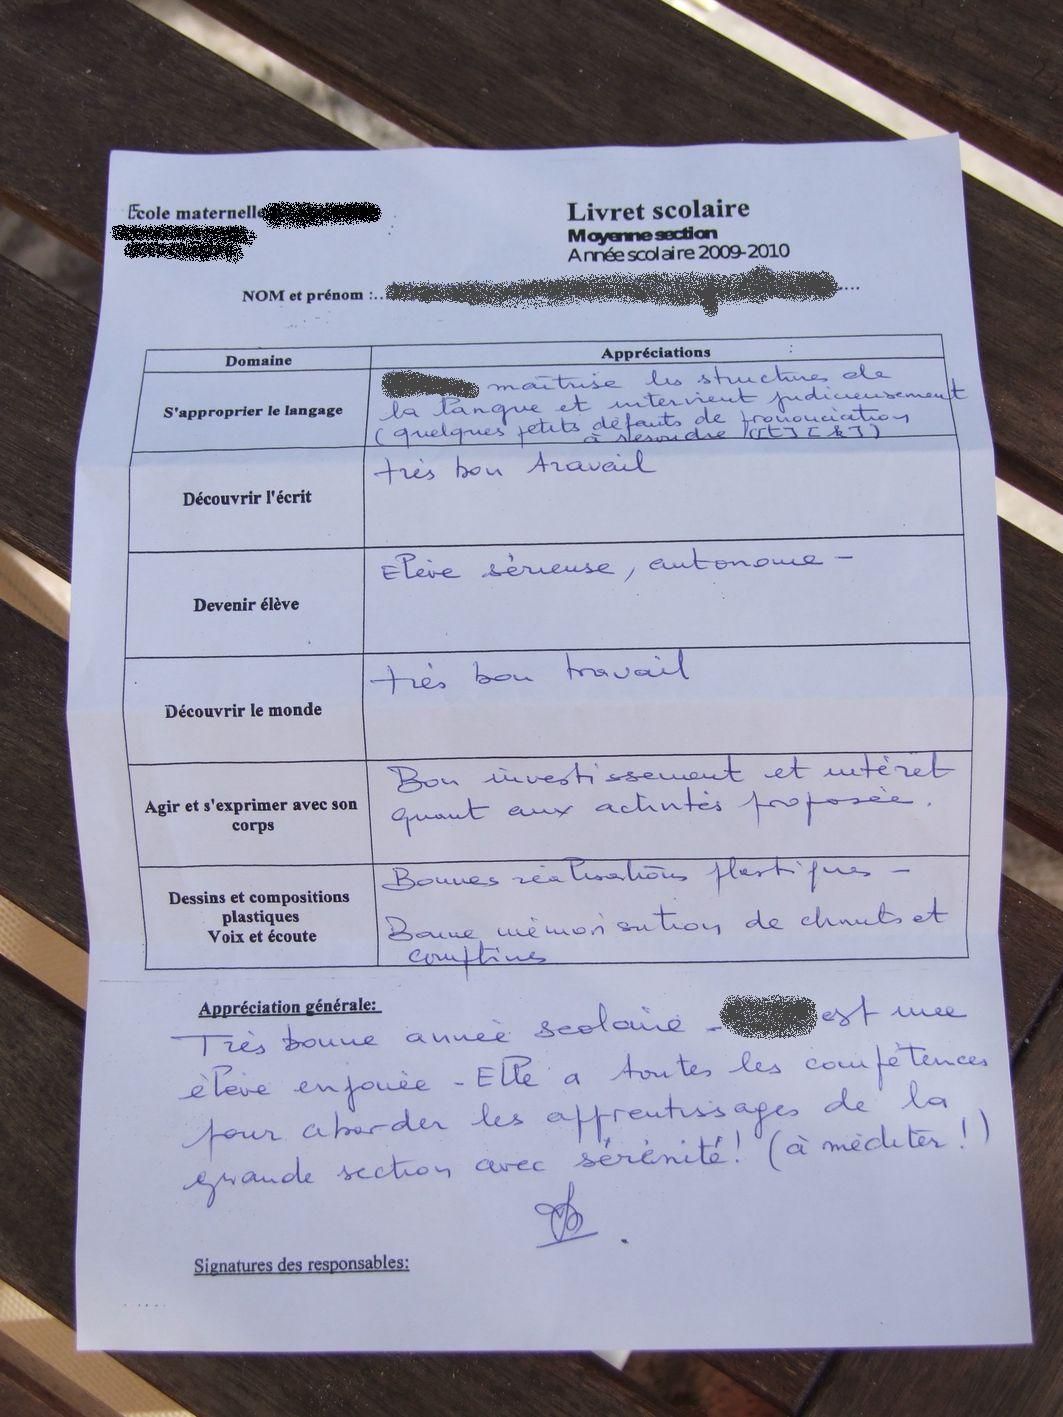 Ecole maternelle
Livret scolaire
Moyenne section
Année scolaire 2009-2010
NOM et prénom :
Domaine
Appréciations
S'approprier le langage
maîtrise les structures de
la langue et intervient judicieusement
(quelques petits défauts de prononciation
à résoudre ([t] [k])
Découvrir l'écrit
très bon travail
Devenir élève
Elève sérieuse, autonome -
Découvrir le monde
très bon travail
Agir et s'exprimer avec son
corps
Bon investissement et intérêt
quant aux activités proposée.
Dessins et compositions
plastiques
Voix et écoute
Bonnes réalisations plastiques -
Bonne mémorisation de chants et
comptines
Appréciation générale:
Très bonne année scolaire - est une
élève enjouée - Elle a toutes les compétences
pour aborder les apprentissages de la
grande section avec sérénité! (à méditer!)
Signatures des responsables: